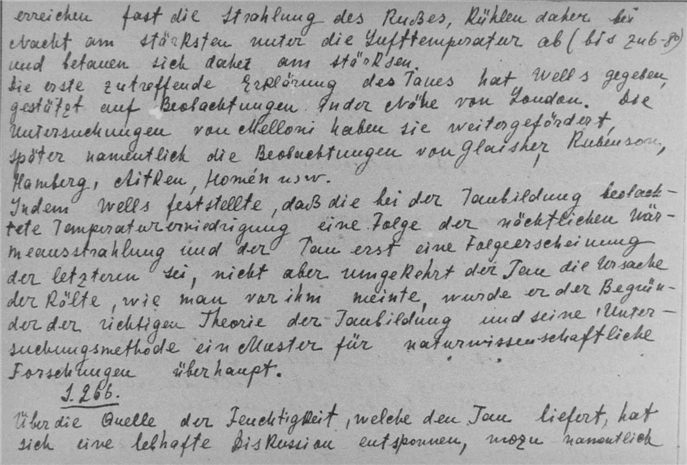 erreichen fast die Strahlung des Rußes, Kühlen daher bei
Nacht am stärksten unter die Lufttemperatur ab (bis zu 6-8°)
und betauen sich daher am stärksen.
Die erste zutreffende Erklärung des Taues hat Wells gegeben,
gestützt auf Beobachtungen In der Nähe von London. Die
Untersuchungen von Melloni haben sie weitergefördert,
später namentlich die Beobachtungen von Glaisher, Rubenson,
Hamberg, Aitken, Homén usw.
Indem Wells feststellte, daß die bei der Taubildung beobach-
tete Temperaturerniedrigung eine Folge der nächtlichen Wär-
meausstrahlung und der Tau erst eine Folgeerscheinung
der letzteren sei, nicht aber umgekehrt der Tau die Ursache
der Kälte, wie man vor ihm meinte, wurde er der Begrün-
der der richtigen Theorie der Taubildung und seine Unter-
suchungsmethode ein Muster für naturwissenschaftliche
Forschungen überhaupt.
S. 266.
Über die Quelle der Feuchtigkeit, welche den Tau liefert, hat
sich eine lebhafte Diskussion entsponnen, wozu namentlich